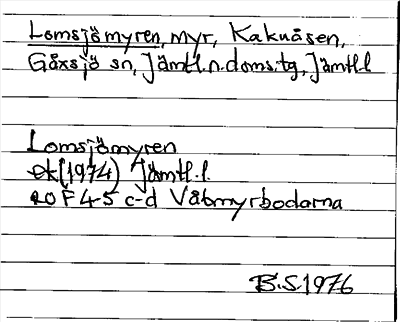 Lomsjömyren, myr, Kakuåsen,
Gåxsjö sn, Jämtl.n.doms.tg, Jämtl.l
Lomsjömyren
ek (1974) Jämtl.l.
20 F 4-5 c-d Våbmyrbodarna
B.S.1976